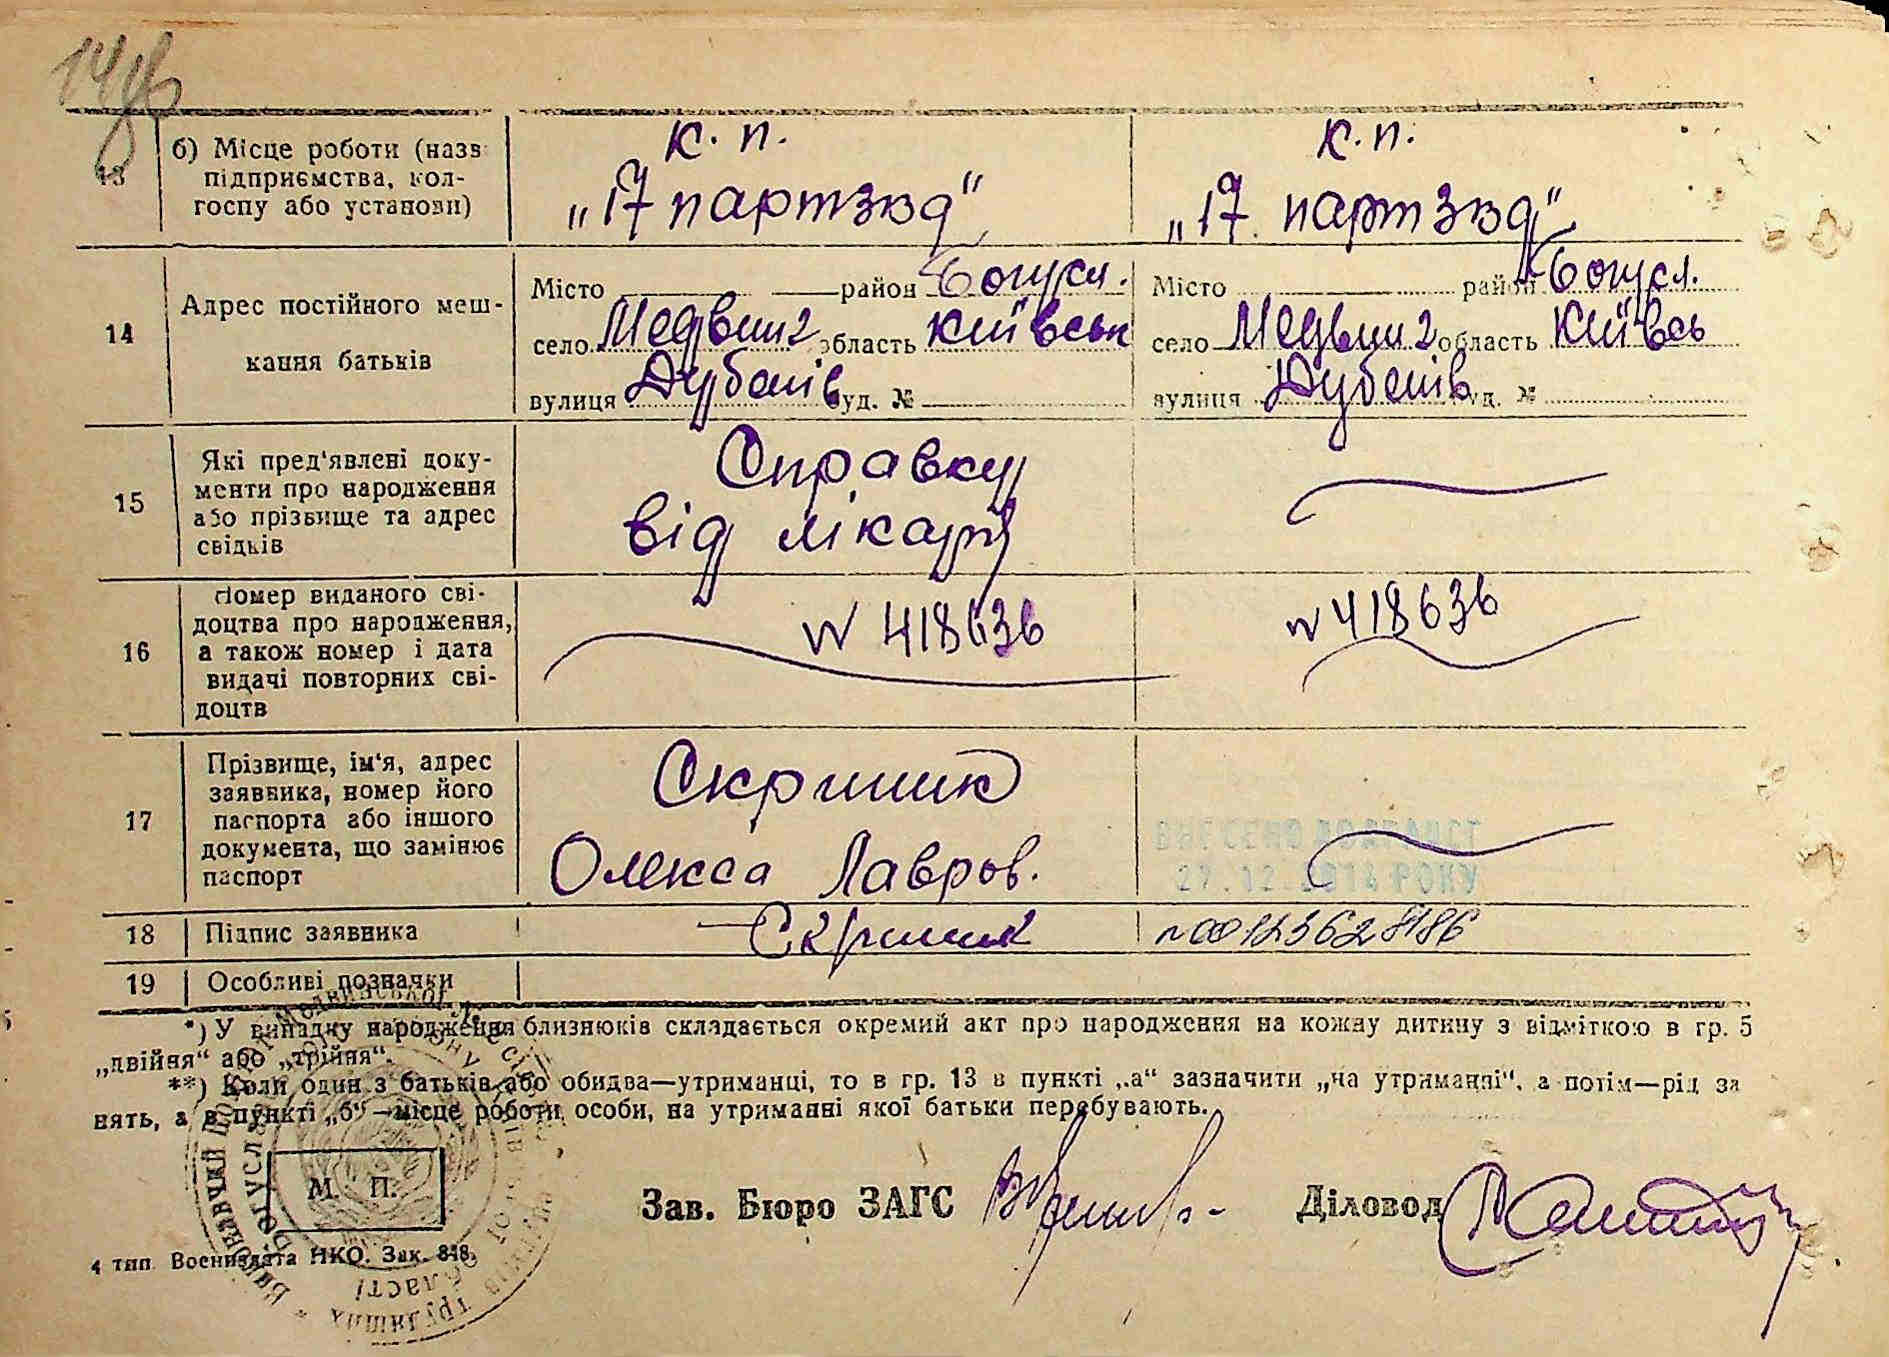 13
б) Місце роботи (назв
підприємства, кол-
госпу або установи)
к. п.
„17 партзюд“
к. п.
„17. партзюд“
14
Адрес постійного меш-
кання батьків
Місто район Богусл.
село Медвин область Київськ
вулиця буд. №
Місто район Богусл.
село Медвин область Київсь
вулиця буд. №
15
Які пред'явлені доку-
менти про народження
або прізвище та адрес
свідків
Справку
від лікаря
16
Номер виданого сві-
доцтва про народження,
а також номер і дата
видачі повторних сві-
доцтв
N 418636
N 418636
17
Прізвище, ім'я, адрес
заявника, номер його
паспорта або іншого
документа, що замінює
паспорт
Скрипик
Олекса Лавров.
ВНЕСЕНО ДО ДРАЦСГ
27.12.2014 РОКУ
18 Підпис заявника
Скрипик
N 00123628186
19 Особливі позначки
*) У випадку народження близнюків складається окремий акт про народження на кожну дитину з відміткою в гр. 5
„двійня“ або „трійня“.
**) Коли один з батьків або обидва—утриманці, то в гр. 13 в пункті „а“ зазначити „на утриманні“, а потім—рід за
нять, а в пункті „б“—місце роботи особи, на утриманні якої батьки перебувають.
М. П.
Зав. Бюро ЗАГС
Діловод
4 тип Воениздата НКО. Зак. 848.